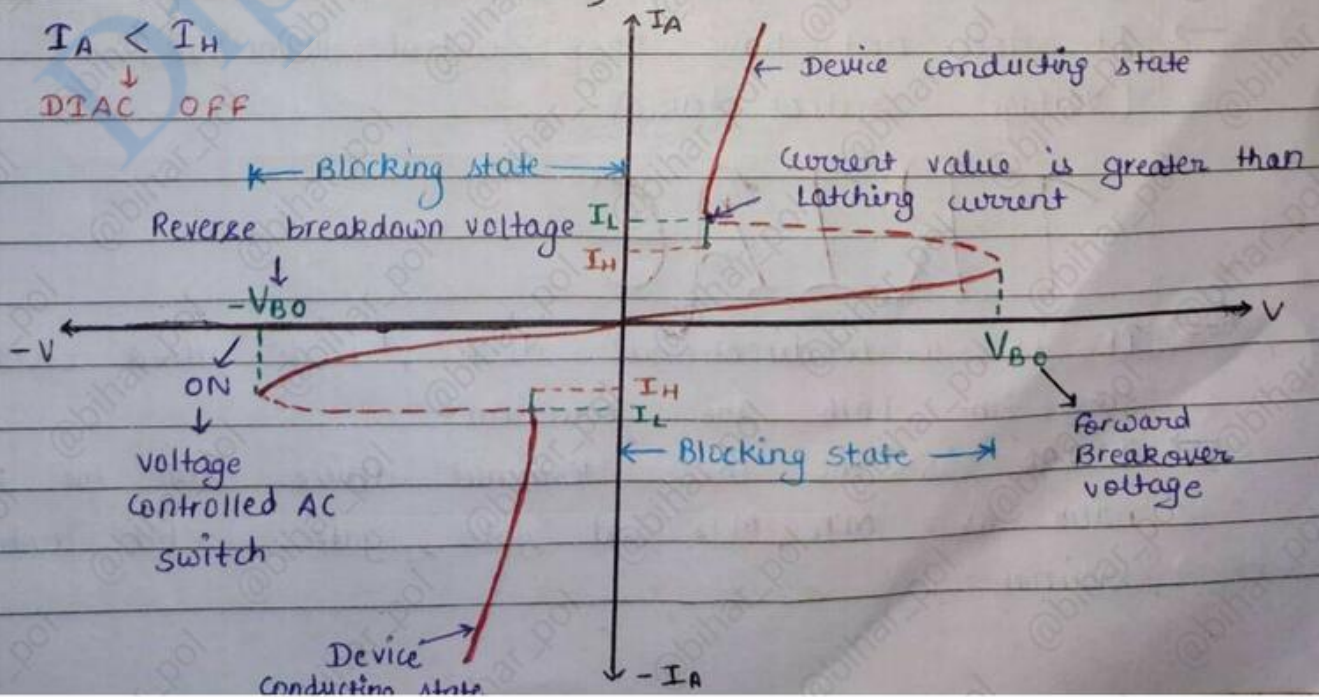 I_A < I_H
↓
DIAC OFF
I_A
← Device conducting state
← Blocking state →
Current value is greater than
Latching current
Reverse breakdown voltage
I_L
I_H
↓
-V_BO
-V
V
V_BO
ON
↓
voltage
controlled AC
switch
I_H
I_L
← Blocking state →
Forward
Breakover
voltage
Device
conducting state
-I_A
@bihar_pol